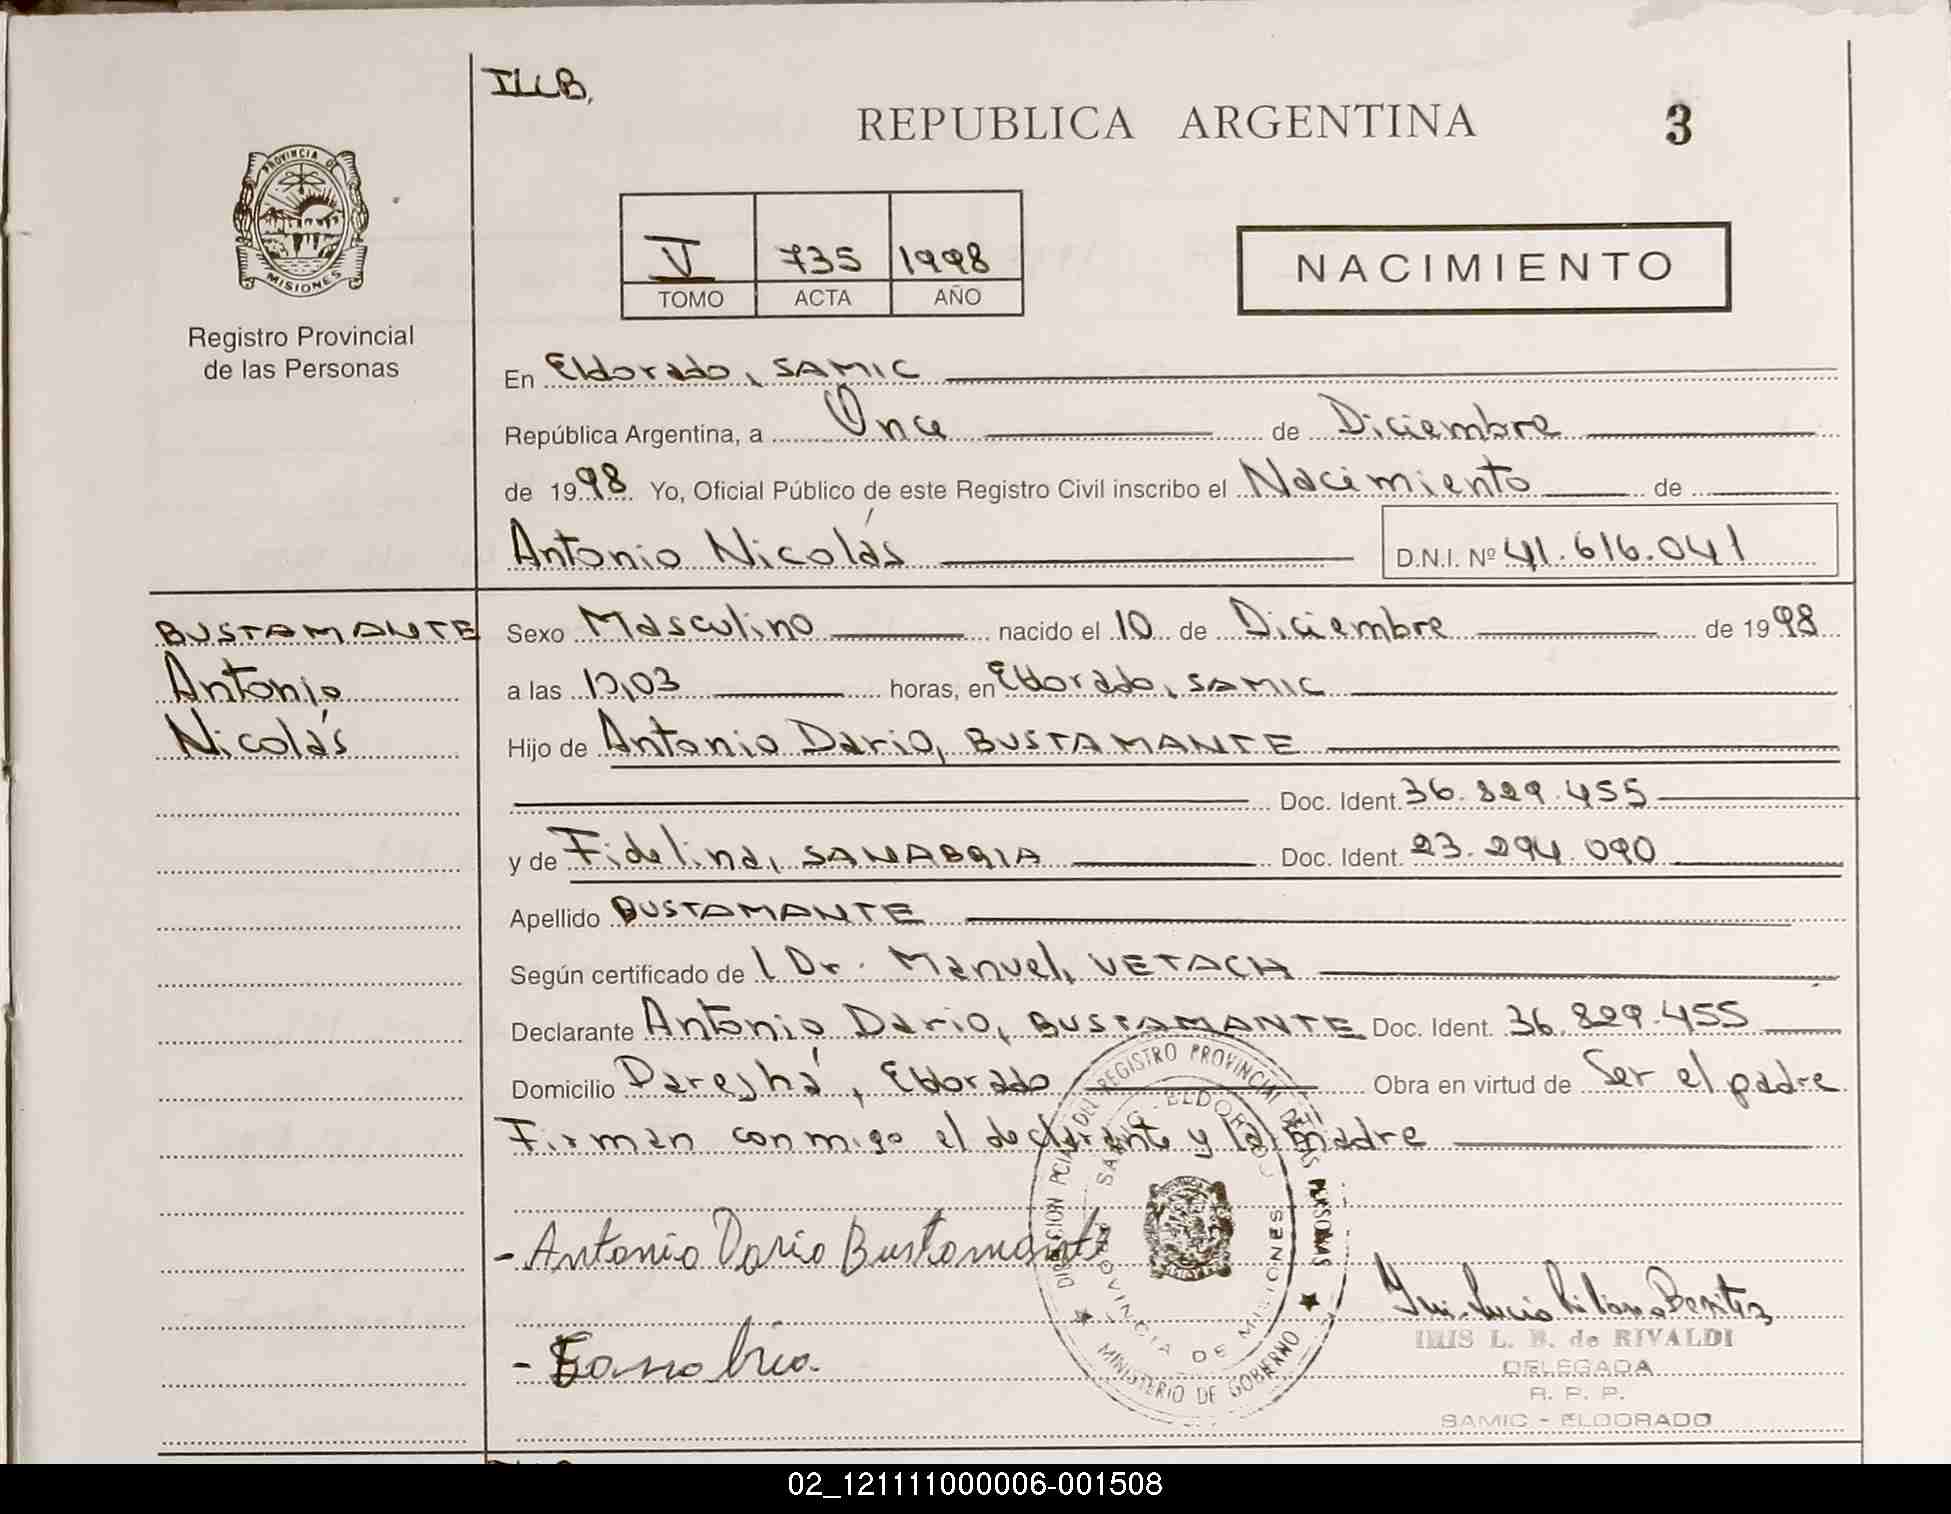 ILLB,
REPUBLICA ARGENTINA 3
PROVINCIA DE MISIONES
Registro Provincial
de las Personas
V 735 1998
TOMO ACTA AÑO
NACIMIENTO
En Eldorado, SAMIC
República Argentina, a Once de Diciembre
de 1998 Yo, Oficial Público de este Registro Civil inscribo el Nacimiento de
Antonio Nicolás D.N.I. Nº 41.616.041
BUSTAMANTE
Antonio
Nicolás
Sexo Masculino nacido el 10 de Diciembre de 1998
a las horas, en Eldorado, SAMIC
Hijo de Antonio Dario, BUSTAMANTE
Doc. Ident. 36.829.455
y de Fidelina, SANABRIA Doc. Ident. 23.294.090
Apellido BUSTAMANTE
Según certificado de l Dr. Manuel, VETACH
Declarante Antonio Dario, BUSTAMANTE Doc. Ident. 36.829.455
Domicilio Eldorado Obra en virtud de Ser el padre
Firman conmigo el declarante y la madre
DIRECCION PCIAL DEL REGISTRO PROVINCIAL DE LAS PERSONAS
SAMIC - ELDORADO
PROVINCIA DE MISIONES
MINISTERIO DE GOBIERNO
- Antonio Dario Bustamante
- Sanabria
Benitez
IRIS L. B. de RIVALDI
DELEGADA
R. P. P.
SAMIC - ELDORADO
02_121111000006-001508